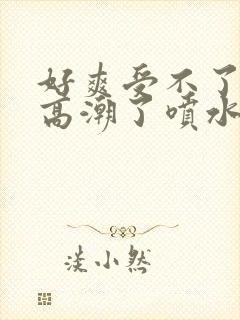 好爽受不了
高潮了喷水
淡小然